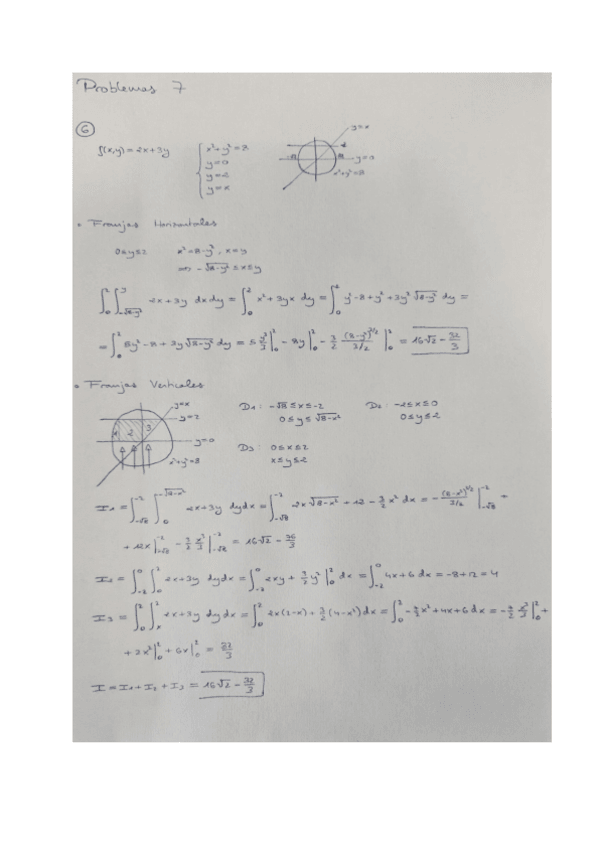 Problemas 7
6
f(x,y) = 2x+3y
x²+y²=8
y=0
y=2
y=x
y=x
2
y=0
x²+y²=8
• Franjas Horizontales
0≤y≤2 x²=8-y², x=y
⇒ -√8-y² ≤ x ≤ y
∫₀² ∫_{-√8-y²}^{y} 2x+3y dxdy = ∫₀² x²+3yx dy = ∫₀² y²-8+y²+3y²+3y√8-y² dy =
= ∫₀² 5y²-8+3y√8-y² dy = 5 y³/3 |₀² - 8y |₀² - 3/2 (8-y²)^{3/2}/3/2 |₀² = 16√2 - 32/3
• Franjas Verticales
y=x
y=2
y=0
x²+y²=8
1 2 3
D1: -√8 ≤ x ≤ -2
0 ≤ y ≤ √8-x²
D2: -2≤x≤0
0≤y≤2
D3: 0≤x≤2
x≤y≤2
I1 = ∫_{-√8}^{-2} ∫₀^{√8-x²} 2x+3y dydx = ∫_{-√8}^{-2} 2x√8-x² + 12 - 3/2 x² dx = - (8-x²)^{3/2}/3/2 |_{-√8}^{-2} =
+ 12x |_{-√8}^{-2} - 3/2 x³/3 |_{-√8}^{-2} = 16√2 - 76/3
I2 = ∫_{-2}^{0} ∫₀² 2x+3y dydx = ∫_{-2}^{0} 2xy + 3/2 y² |₀² dx = ∫_{-2}^{0} 4x+6 dx = -8+12 = 4
I3 = ∫₀² ∫ₓ² 2x+3y dydx = ∫₀² 2x(2-x) + 3/2 (4-x²) dx = ∫₀² -7/2 x² + 4x + 6 dx = -7/2 x³/3 |₀² +
+ 2x² |₀² + 6x |₀² = 32/3
I = I1 + I2 + I3 = 16√2 - 32/3